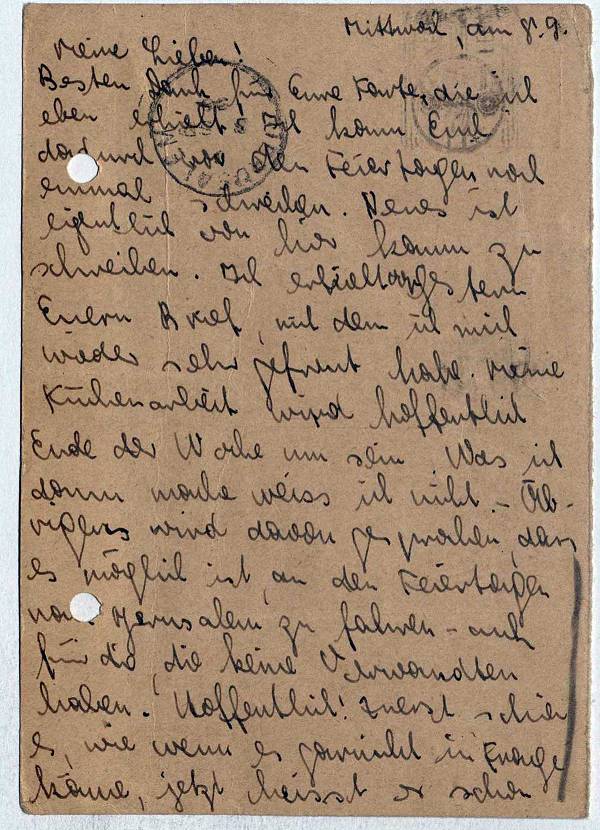 Mittwoch, am 8.9.
Meine Lieben!
Besten Dank für Eure Karte, die ich
eben erhielt. Ich kann Euch
dadurch vor den Feiertagen noch
einmal schreiben. Neues ist
eigentlich von hier kaum zu
schreiben. Ich erhielt gestern
Euern Brief, mit dem ich mich
wieder sehr gefreut habe. Meine
Küchenarbeit wird hoffentlich
Ende der Woche um sein. Was ich
dann mache weiss ich nicht. – Üb-
rigens wird davon gesprochen, dass
es möglich ist, an den Feiertagen
nach Jerusalem zu fahren – auch
für die, die keine Verwandten
haben. Hoffentlich! Zuerst schien
es, wie wenn es garnicht in Frage
käme, jetzt heisst es schon